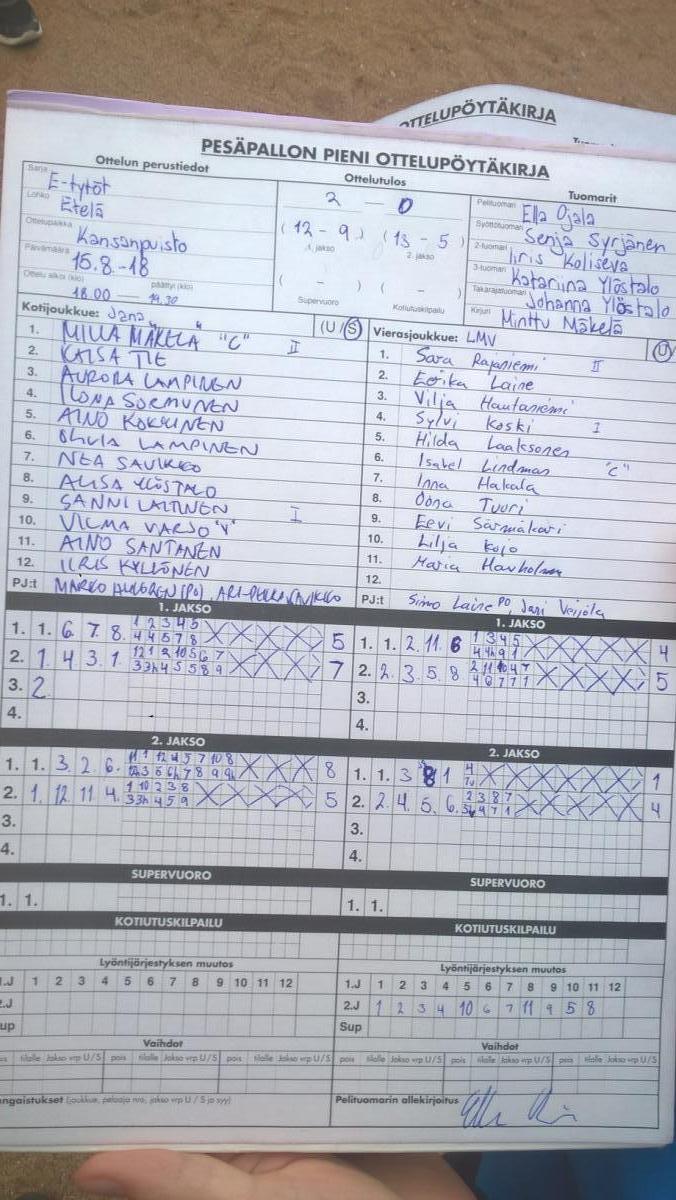 OTTELUPÖYTÄKIRJA
PESÄPALLON PIENI OTTELUPÖYTÄKIRJA
Ottelun perustiedot
Sarja E-tytöt
Lohko Etelä
Ottelupaikka Kansanpuisto
Päivämäärä 15.8.-18
Ottelu alkoi (klo) päättyi (klo)
18.00 — 19.30
Ottelutulos
2 — 0
(12 - 9) (13 - 5)
1. jakso 2. jakso
( - ) ( - )
Supervuoro Kotiutuskilpailu
Tuomarit
Pelituomari Ella Ojala
Syöttötuomari Senja Syrjänen
2-tuomari Iiris Koliseva
3-tuomari Katariina Ylöstalo
Takarajatuomari Johanna Ylöstalo
Kirjuri Minttu Mäkelä
Kotijoukkue: Jana (U/S)
1. MILLA MÄKELÄ "C" II
2. KAISA TIE
3. AURORA LAMPINEN
4. ILONA SORMUNEN
5. AINO KOKKINEN
6. OLIVIA LAMPINEN
7. NEA SAVIKKO
8. ALISA YLÖSTALO
9. SANNI LAITINEN I
10. VILMA VARJO "V"
11. AINO SANTANEN
12. IIRIS KYLLÖNEN
PJ:t MARKO (PJ), ARI-PEKKA SAVIKKO
Vierasjoukkue: LMV (U/
1. Sara Rajaniemi II
2. Eerika Laine
3. Vilja Hautaniemi
4. Sylvi Koski I
5. Hilda Laaksonen
6. Isabel Lindman "C"
7. Inna Hakala
8. Oona Tuuri
9. Eevi
10. Lilja Kojo
11. Maria Harholma
12.
PJ:t Simo Laine PJ, Jani Veijola
1. JAKSO
1. 1. 6. 7. 8. 1 2 3 4 5 5
4 4 5 7 8
2. 1. 4 3. 1. 7
3. 2
4.
1. JAKSO
1. 1. 2. 11. 6 1 3 4 5 4
2. 2. 3. 5. 8 5
3.
4.
2. JAKSO
1. 1. 3. 2. 6. 8
2. 1. 12. 11 4. 1 10 2 3 8 5
3.
4.
2. JAKSO
1. 1. 3 8 1 4 1
2. 2 4. 5. 6. 2 3 8 7 4
3.
4.
SUPERVUORO
1. 1.
SUPERVUORO
1. 1.
KOTIUTUSKILPAILU
KOTIUTUSKILPAILU
Lyöntijärjestyksen muutos
.J 1 2 3 4 5 6 7 8 9 10 11 12
2.J
up
Lyöntijärjestyksen muutos
1.J 1 2 3 4 5 6 7 8 9 10 11 12
2.J 1 2 3 4 10 6 7 11 9 5 8
Sup
Vaihdot
tilalle Jakso vrp U/S pois tilalle Jakso vrp U/S pois tilalle Jakso vrp U/S
Vaihdot
pois tilalle Jakso vrp U/S pois tilalle Jakso vrp U/S pois tilalle Jakso vrp U/S
ngaistukset (joukkue, pelaaja nro, jakso vrp U / S ja syy)
Pelituomarin allekirjoitus